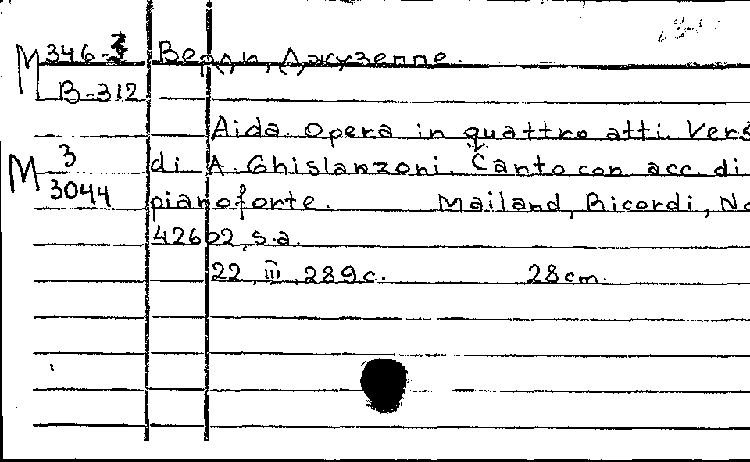 М 346-3 Верди, Джузеппе.
В-312
Aida. Opera in quattro atti. Vers
М 3 di A. Ghislanzoni. Canto con acc. di
3044 pianoforte. Mailand, Ricordi, No
42602, s.a.
22, III, 289 c. 28 cm.